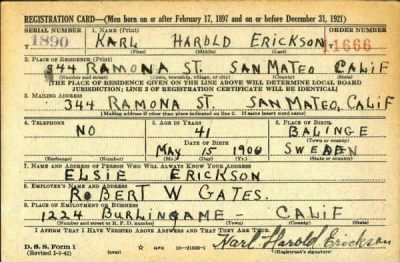 REGISTRATION CARD—(Men born on or after February 17, 1897 and on or before December 31, 1921)
SERIAL NUMBER 1. NAME (Print) ORDER NUMBER
1890 KARL HAROLD ERICKSON 11666
(First) (Middle) (Last)
2. PLACE OF RESIDENCE (Print)
344 RAMONA ST. SAN MATEO CALIF
(Number and street) (Town, township, village, or city) (County) (State)
[THE PLACE OF RESIDENCE GIVEN ON THE LINE ABOVE WILL DETERMINE LOCAL BOARD
JURISDICTION; LINE 2 OF REGISTRATION CERTIFICATE WILL BE IDENTICAL]
3. MAILING ADDRESS
344 RAMONA ST. SAN MATEO, CALIF
[Mailing address if other than place indicated on line 2. If same insert word same]
4. TELEPHONE 5. AGE IN YEARS 6. PLACE OF BIRTH
NO 41 BALINGE
DATE OF BIRTH (Town or county)
MAY 15 1900 SWEDEN
(Exchange) (Number) (Mo.) (Day) (Yr.) (State or country)
7. NAME AND ADDRESS OF PERSON WHO WILL ALWAYS KNOW YOUR ADDRESS
ELSIE ERICKSON
8. EMPLOYER'S NAME AND ADDRESS
ROBERT W GATES.
9. PLACE OF EMPLOYMENT OR BUSINESS
1224 BURLINGAME — CALIF
(Number and street or R. F. D. number) (Town) (County) (State)
I AFFIRM THAT I HAVE VERIFIED ABOVE ANSWERS AND THAT THEY ARE TRUE.
D. S. S. Form 1
(Revised 1-1-42)
Karl Harold Erickson
(Registrant's signature)